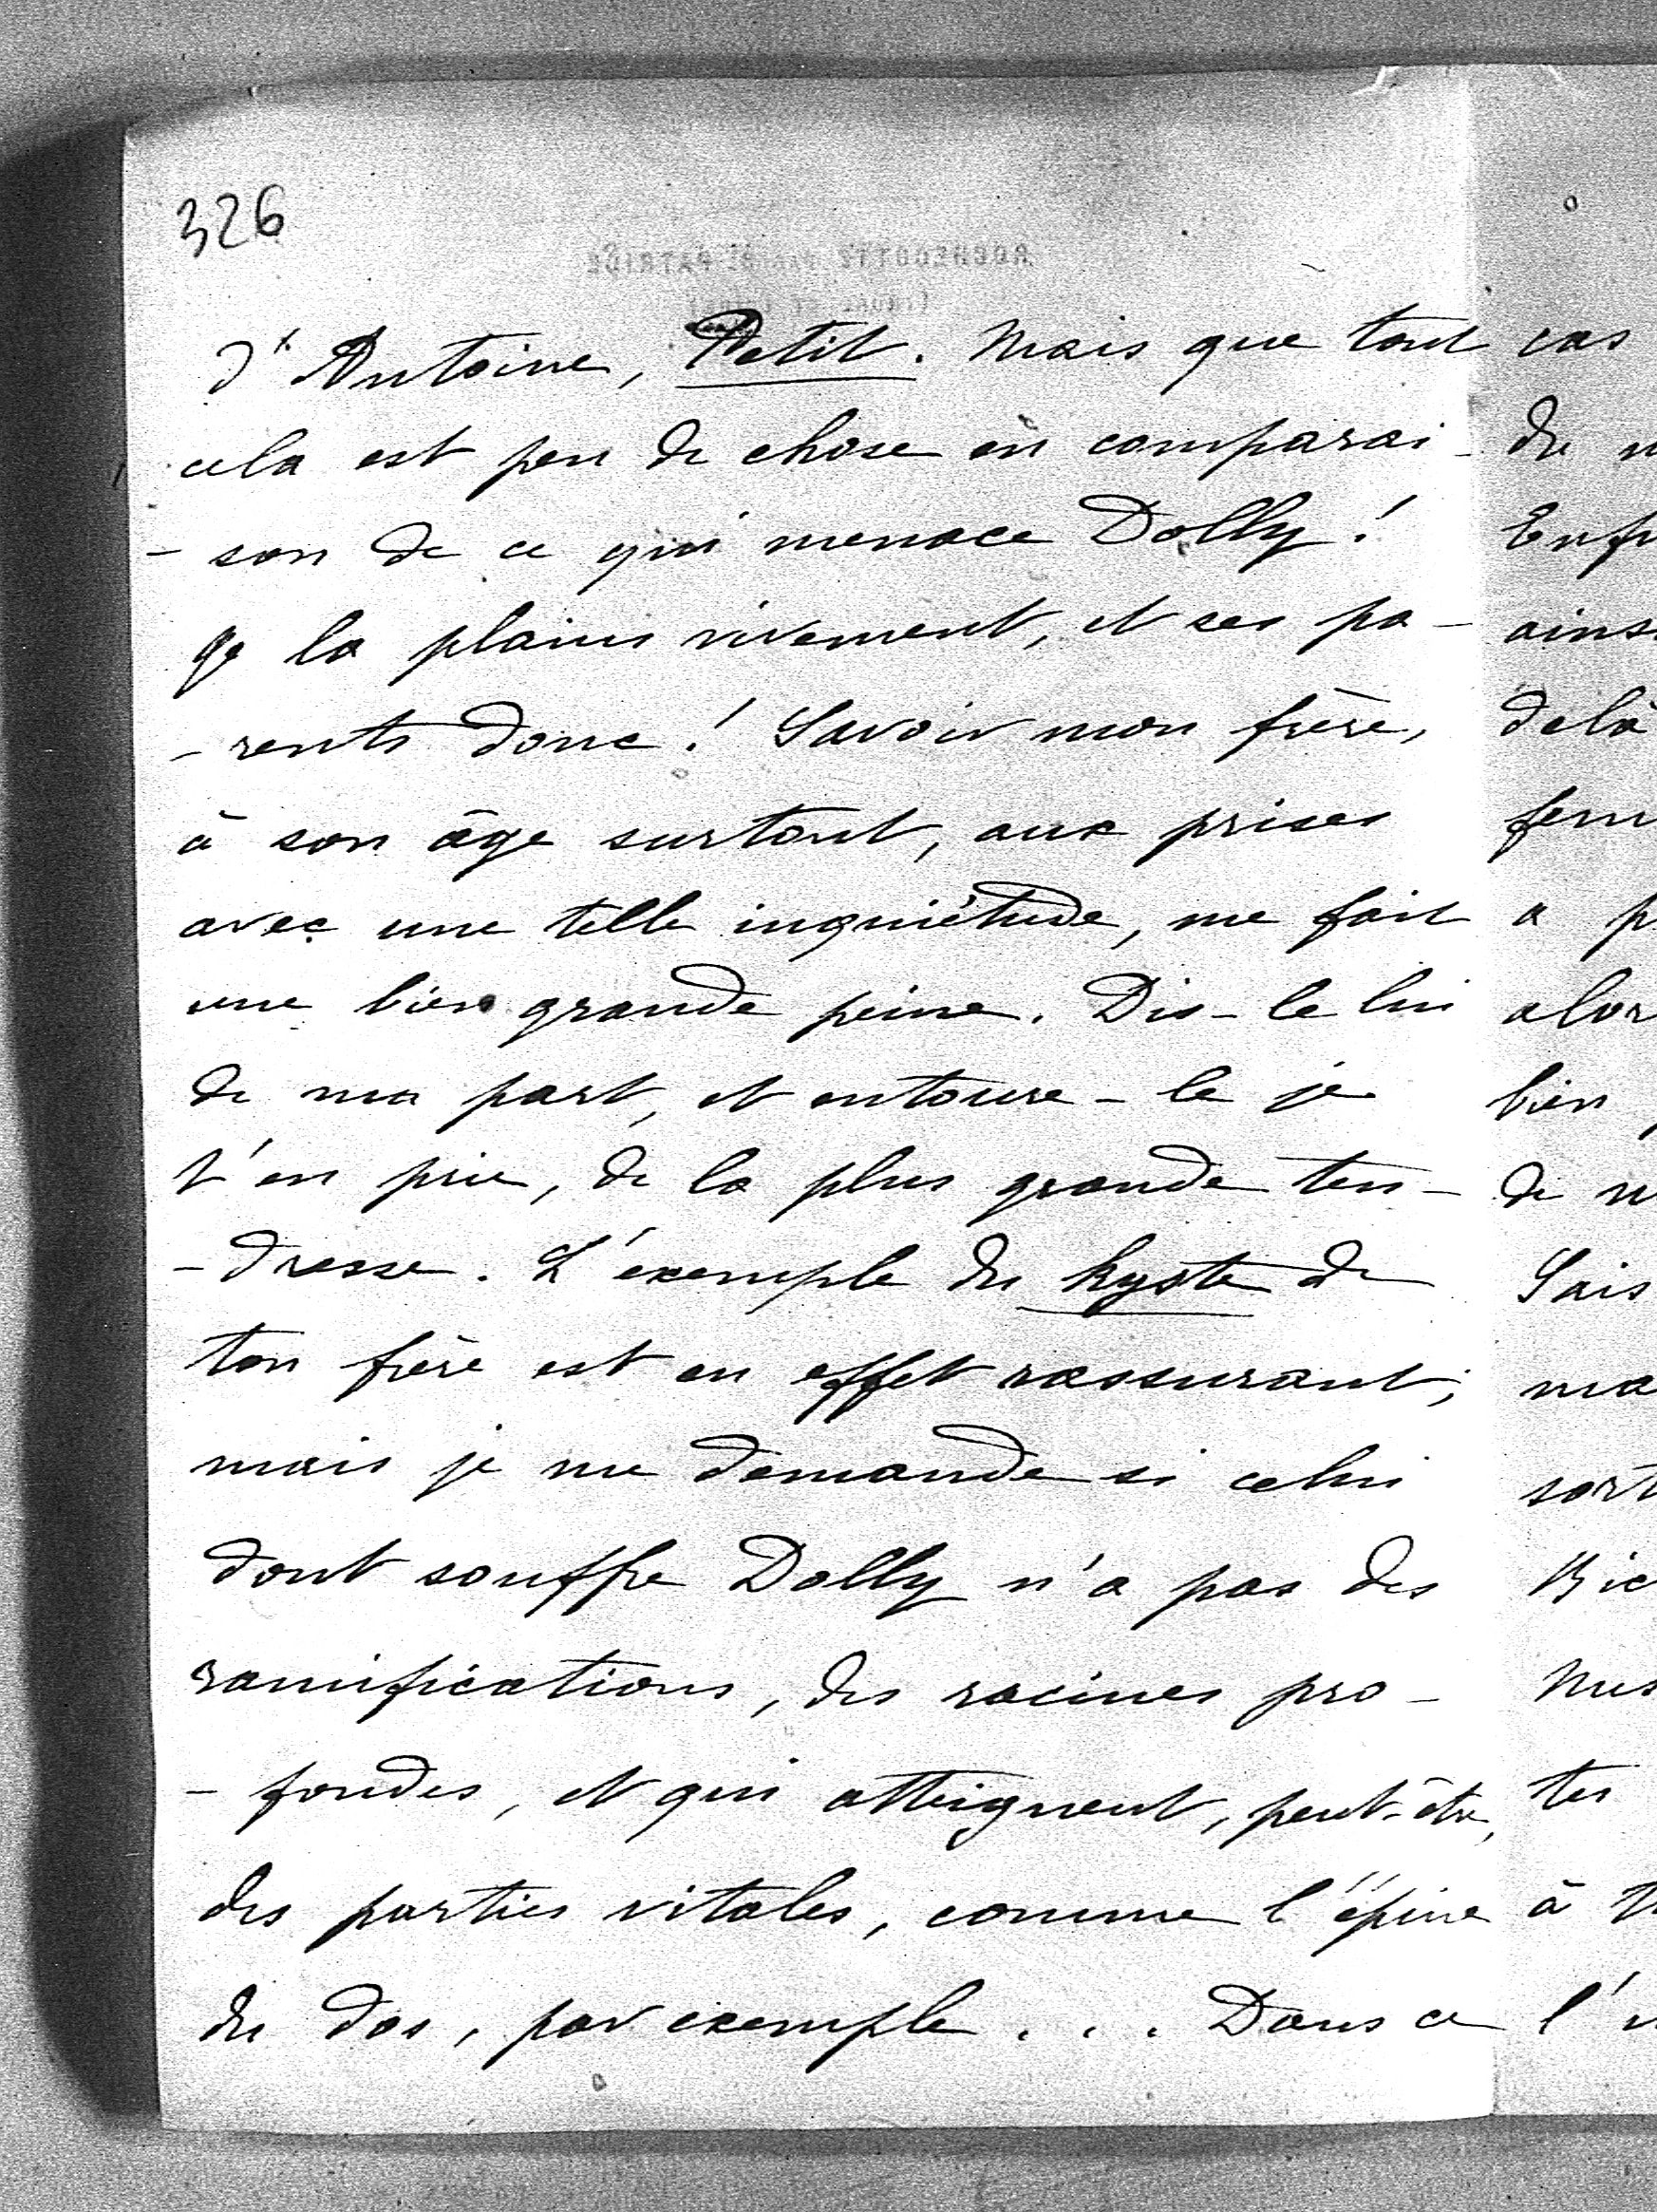 326
ROCHECOTTE PAR ST PATRICE
d'Antoine, Petit. Mais que tout
cela est peu de chose en comparai-
-son de ce qui menace Dolly !
Je la plains vivement, et ses pa-
-rents donc ! Savoir mon frère,
à son âge surtout, aux prises
avec une telle inquiétude, me fait
une bien grande peine. Dis-le lui
de ma part, et entoure-le je
t'en prie, de la plus grande ten-
-dresse. L'exemple du kyste de
ton frère est en effet rassurant ;
mais je me demande si celui
dont souffre Dolly n'a pas des
ramifications, des racines pro-
-fondes, et qui atteignent, peut-être,
des parties vitales, comme l'épine
du dos, par exemple... Dans ce
cas
du
ainsi
delà
a
bien
de
Sais
ma
tes
à